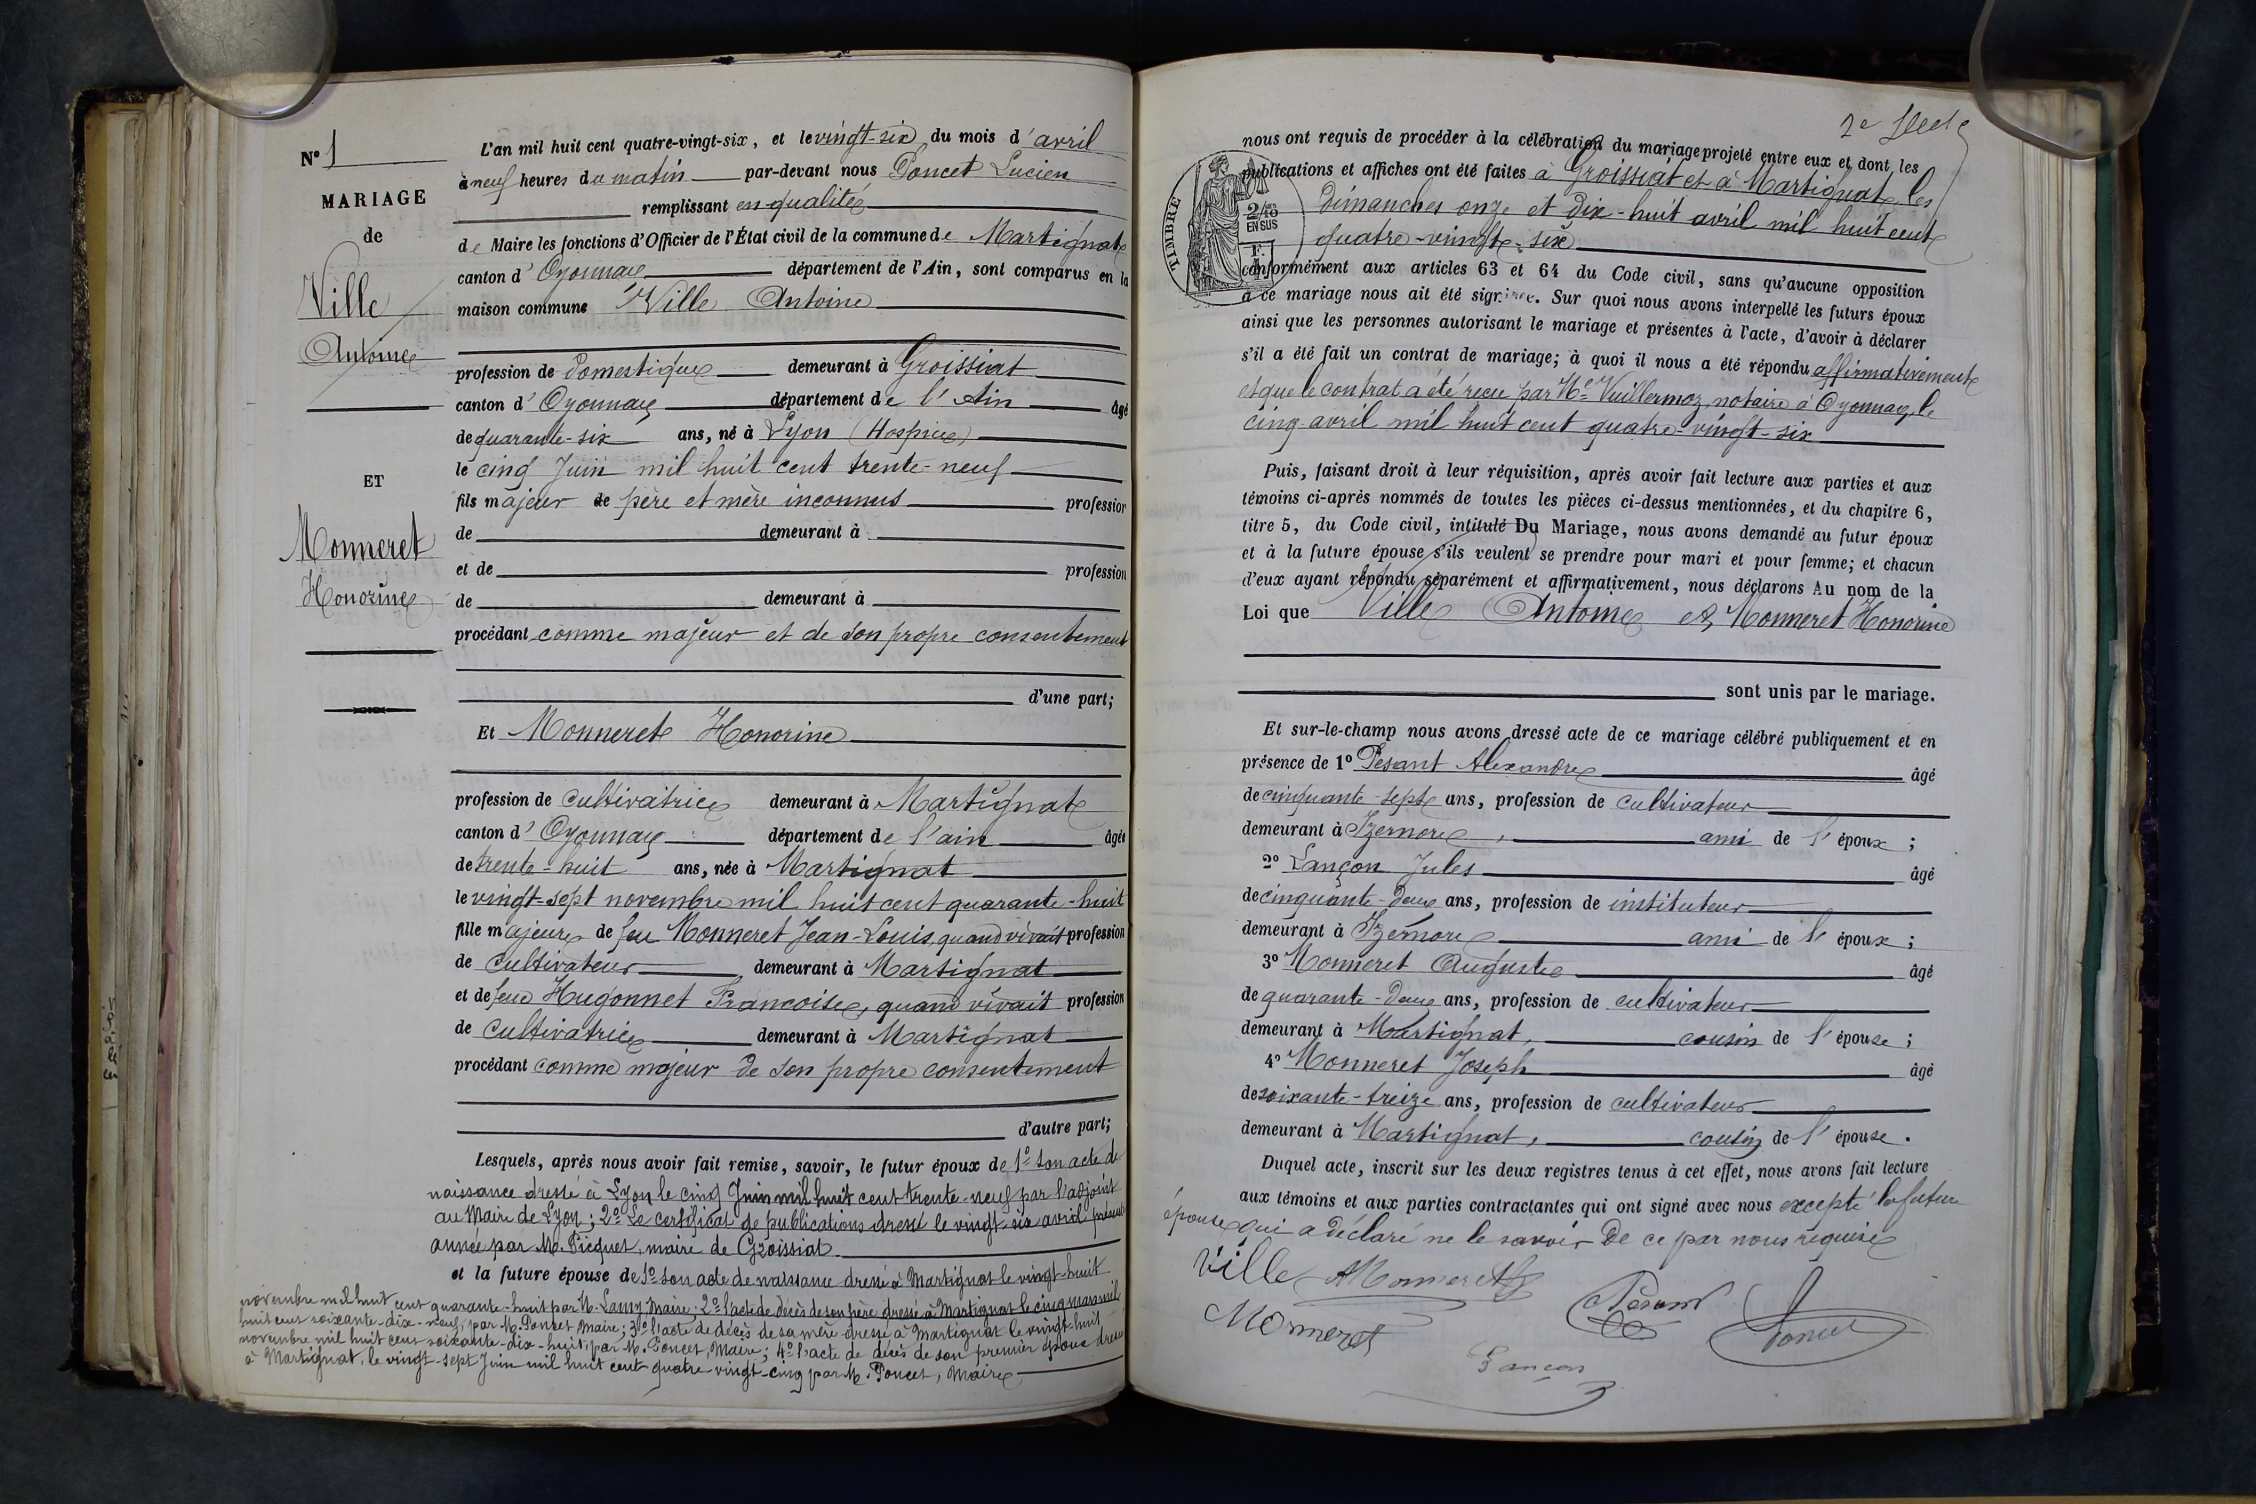 N° 1
MARIAGE
de
Ville
Antoine
ET
Monneret
Honorine
L'an mil huit cent quatre-vingt-six, et le vingt-six du mois d'avril
à neuf heures du matin par-devant nous Poncet Lucien
remplissant en qualité
de Maire les fonctions d'Officier de l'État civil de la commune de Martignat
canton d'Oyonnax département de l'Ain, sont comparus en la
maison commune Ville Antoine
profession de Domestique demeurant à Groissiat
canton d'Oyonnax département de l'Ain âgé
de quarante-six ans, né à Lyon (Hospice)
le cinq Juin mil huit cent trente-neuf
fils majeur de père et mère inconnus profession
de demeurant à
et de profession
de demeurant à
procédant comme majeur et de son propre consentement
d'une part;
Et Monneret Honorine
profession de cultivatrice demeurant à Martignat
canton d'Oyonnax département de l'ain âgée
de trente-huit ans, née à Martignat
le vingt-sept novembre mil huit cent quarante-huit
fille majeure de feu Monneret Jean-Louis, quand vivait profession
de cultivateur demeurant à Martignat
et de feue Hugonnet Françoise, quand vivait profession
de cultivatrice demeurant à Martignat
procédant comme majeur de son propre consentement
d'autre part;
Lesquels, après nous avoir fait remise, savoir, le futur époux de 1° son acte de
naissance dressé à Lyon le cinq Juin mil huit cent trente-neuf par l'adjoint
au Maire de Lyon; 2° Le certificat de publications dressé le vingt-six avril présente
année par M. Picquet, maire de Groissiat
et la future épouse de 1° son acte de naissance dressé à Martignat le vingt-huit
novembre mil huit cent quarante-huit par M. Lamy, Maire; 2° l'acte de décès de son père dressé à Martignat le cinq mars mil
huit cent soixante-dix-neuf, par M. Poncet, Maire; 3° l'acte de décès de sa mère dressé à Martignat le vingt-huit
novembre mil huit cent soixante-dix-huit, par M. Poncet, Maire; 4° l'acte de décès de son premier époux dressé
à Martignat, le vingt-sept Juin mil huit cent quatre-vingt-cinq par M. Poncet, Maire
nous ont requis de procéder à la célébration du mariage projeté entre eux et dont les
publications et affiches ont été faites à Groissiat et à Martignat les
dimanches onze et dix-huit avril mil huit cent
quatre-vingt-six
TIMBRE
2/10
EN SUS
conformément aux articles 63 et 64 du Code civil, sans qu'aucune opposition
à ce mariage nous ait été signifiée. Sur quoi nous avons interpellé les futurs époux
ainsi que les personnes autorisant le mariage et présentes à l'acte, d'avoir à déclarer
s'il a été fait un contrat de mariage; à quoi il nous a été répondu affirmativement
et que le contrat a été reçu par Me Vuillermoz, notaire à Oyonnax, le
cinq avril mil huit cent quatre-vingt-six
Puis, faisant droit à leur réquisition, après avoir fait lecture aux parties et aux
témoins ci-après nommés de toutes les pièces ci-dessus mentionnées, et du chapitre 6,
titre 5, du Code civil, intitulé Du Mariage, nous avons demandé au futur époux
et à la future épouse s'ils veulent se prendre pour mari et pour femme; et chacun
d'eux ayant répondu séparément et affirmativement, nous déclarons Au nom de la
Loi que Ville Antoine et Monneret Honorine
sont unis par le mariage.
Et sur-le-champ nous avons dressé acte de ce mariage célébré publiquement et en
présence de 1° Pesant Alexandre âgé
de cinquante-sept ans, profession de cultivateur
demeurant à Izernore, ami de l'époux;
2° Lançon Jules âgé
de cinquante-deux ans, profession de instituteur
demeurant à Izernore ami de l'époux;
3° Monneret Auguste âgé
de quarante-deux ans, profession de cultivateur
demeurant à Martignat, cousin de l'épouse;
4° Monneret Joseph âgé
de soixante-treize ans, profession de cultivateur
demeurant à Martignat, cousin de l'épouse.
Duquel acte, inscrit sur les deux registres tenus à cet effet, nous avons fait lecture
aux témoins et aux parties contractantes qui ont signé avec nous excepté la future
épouse qui a déclaré ne le savoir De ce par nous requise
Ville AMonneret Pesant
Monneret Poncet
Lançon